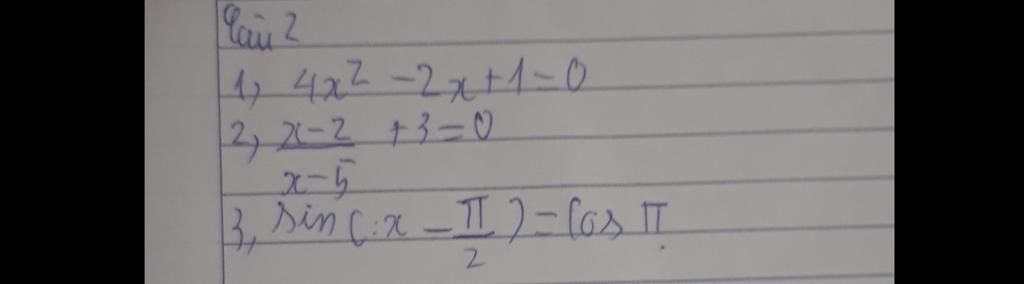 Câu 2
1, 4x² - 2x + 1 = 0
2, \frac{x-2}{x-5} + 3 = 0
3, sin(x - \frac{π}{2}) = cos π